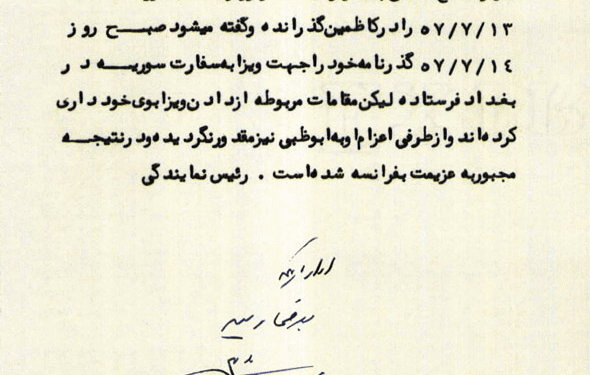 ۵۷/۷/۱۳ را در کاظمین گذرانده و گفته میشود صبح روز
۵۷/۷/۱۴ گذرنامه خود را جهت ویزا به سفارت سوریه در
بغداد فرستاده لیکن مقامات مربوطه از دادن ویزا بوی خودداری
کرده‌اند و از طرفی اعزام او به ابوظبی نیز مقدور نگردیده و در نتیجه
مجبور به عزیمت بفرانسه شده است . رئیس نمایندگی